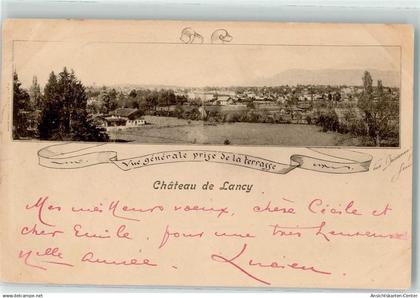 Vue générale prise de la terrasse
Château de Lancy
Mes meilleurs voeux, chère Cécile et
cher Emile, pour une très heureuse
nelle année. Lucien
www.ansichtskarten-center.de